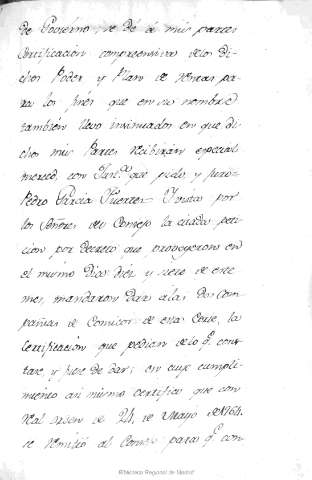 de Govierno, se dè á mis partes
Certificacion comprensiva de los di-
chos Poder y Plan de Rentas pa-
ra los fines que en su nombre
tambien llevo insinuados en que di-
chos mis Partes recibiran especial
merced, con Just.ª que pido, y juro=
Pedro Garcia Fuertes= Y vista por
los Señores del Consejo la citada peti-
cion por decreto que proveyeron en
el mismo dia diez y siete de este
mes, mandaron dar á las dos Com-
pañias de Comicos de esta Corte, la
Certificacion que pedian de lo q.e cons-
tare, y fuere de dar; en cuyo cumpli-
miento asi mismo certifico que con
Real orden de 24, de Mayo de 1764
se remitió al Consejo para q.e con
Biblioteca Regional de Madrid